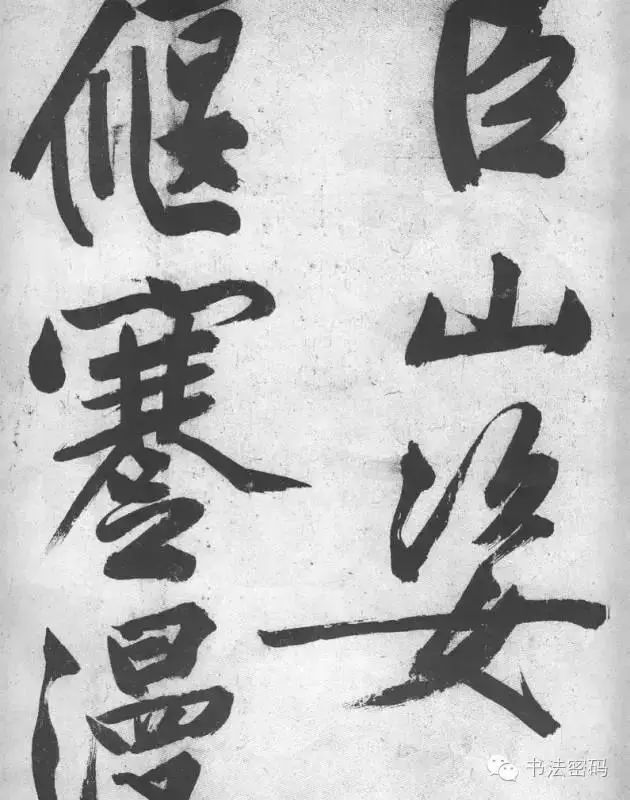 巨山姿
偃蹇漫
书法密码